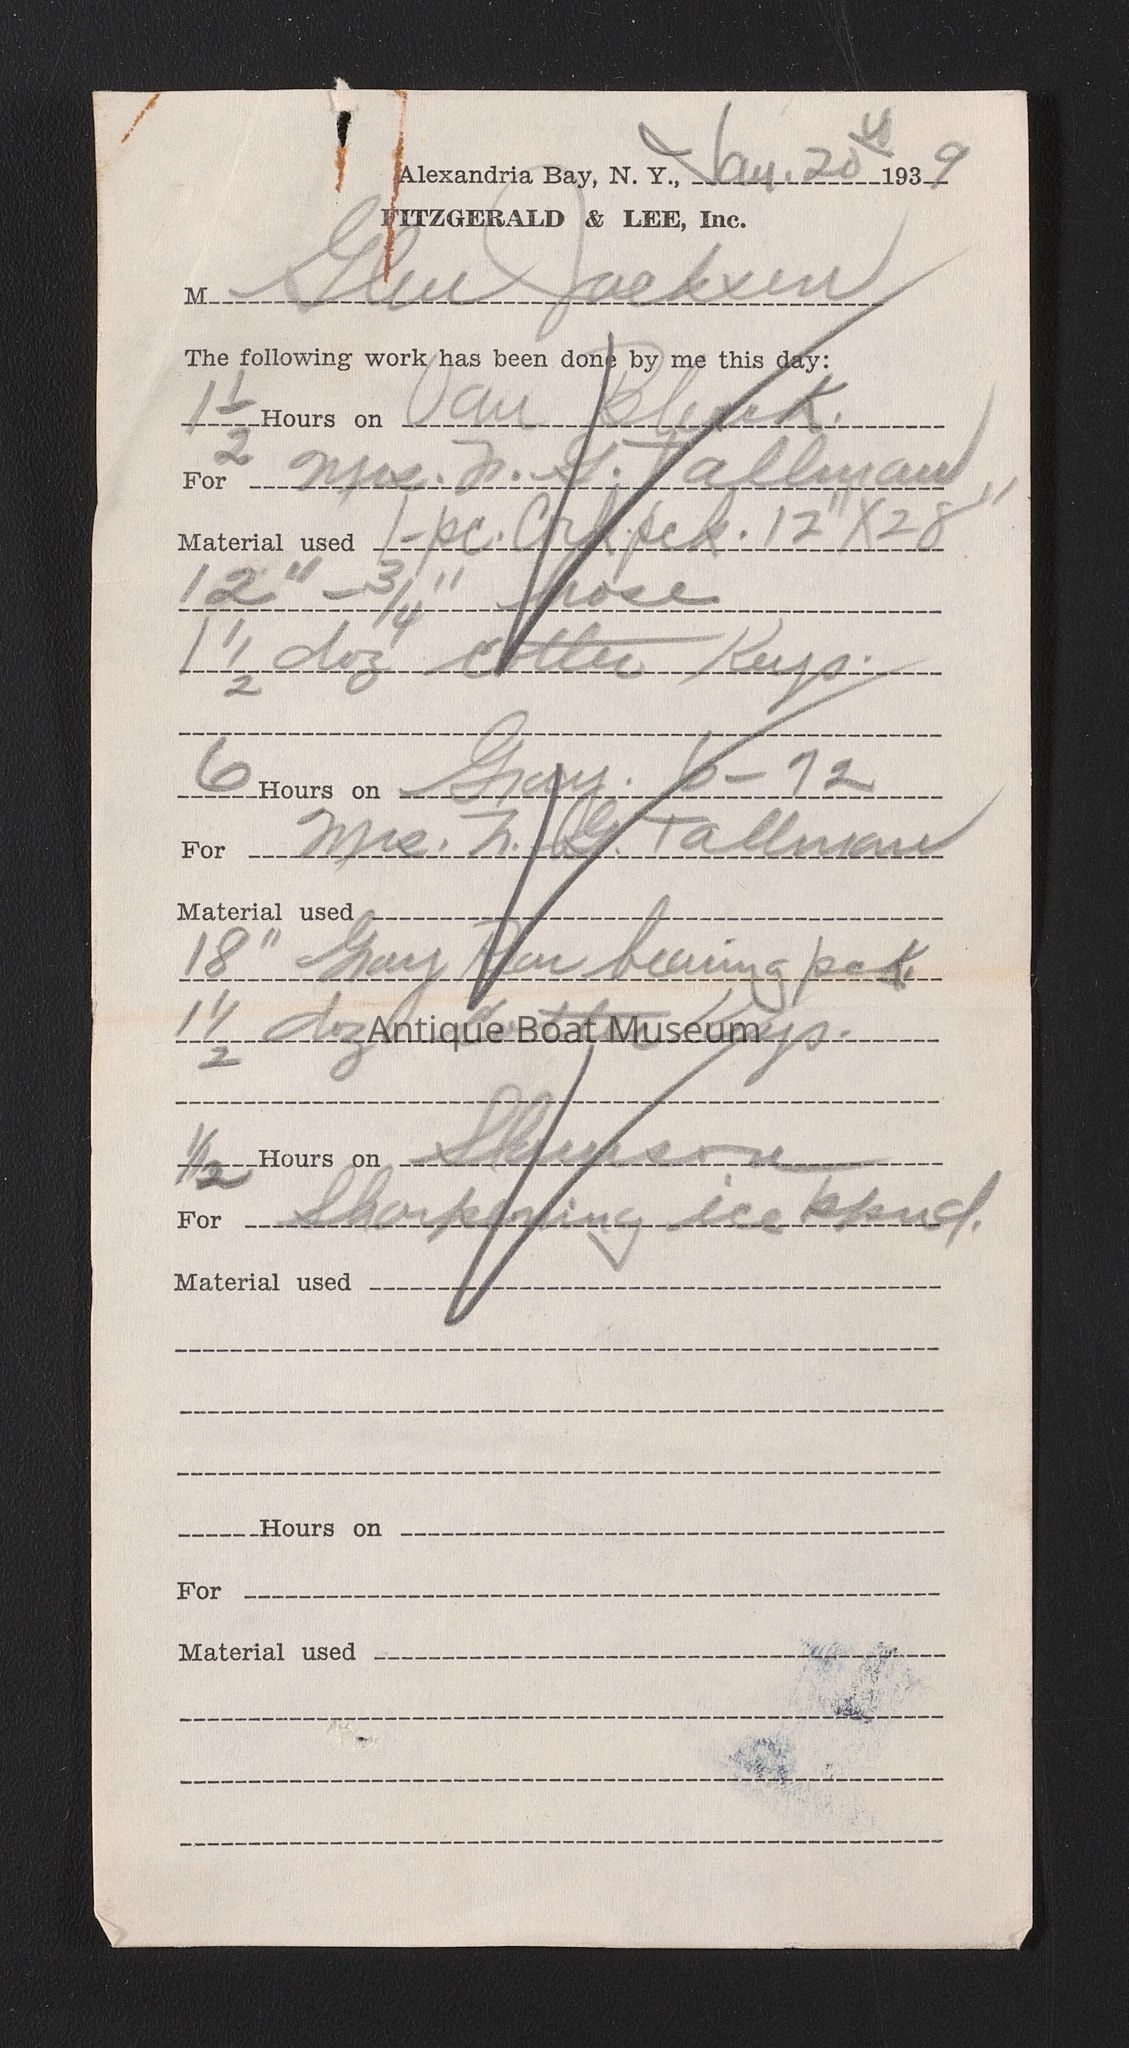 Alexandria Bay, N. Y., Jan. 20th 1939
FITZGERALD & LEE, Inc.
M Glen Jackson
The following work has been done by me this day:
1 1/2 Hours on Van Blerck.
For Mrs. F. G. Tallman
Material used 1-pc. Crk. pck. 12" X 28"
12" - 3/4" hose
1 1/2 doz cotter Keys.
6 Hours on Gray. 6-72
For Mrs. F. G. Tallman
Material used
18" Gray Rear bearing pck.
1 1/2 doz Cotter Keys.
Antique Boat Museum
1/2 Hours on
For Sharpening ice spud.
Material used
Hours on
For
Material used